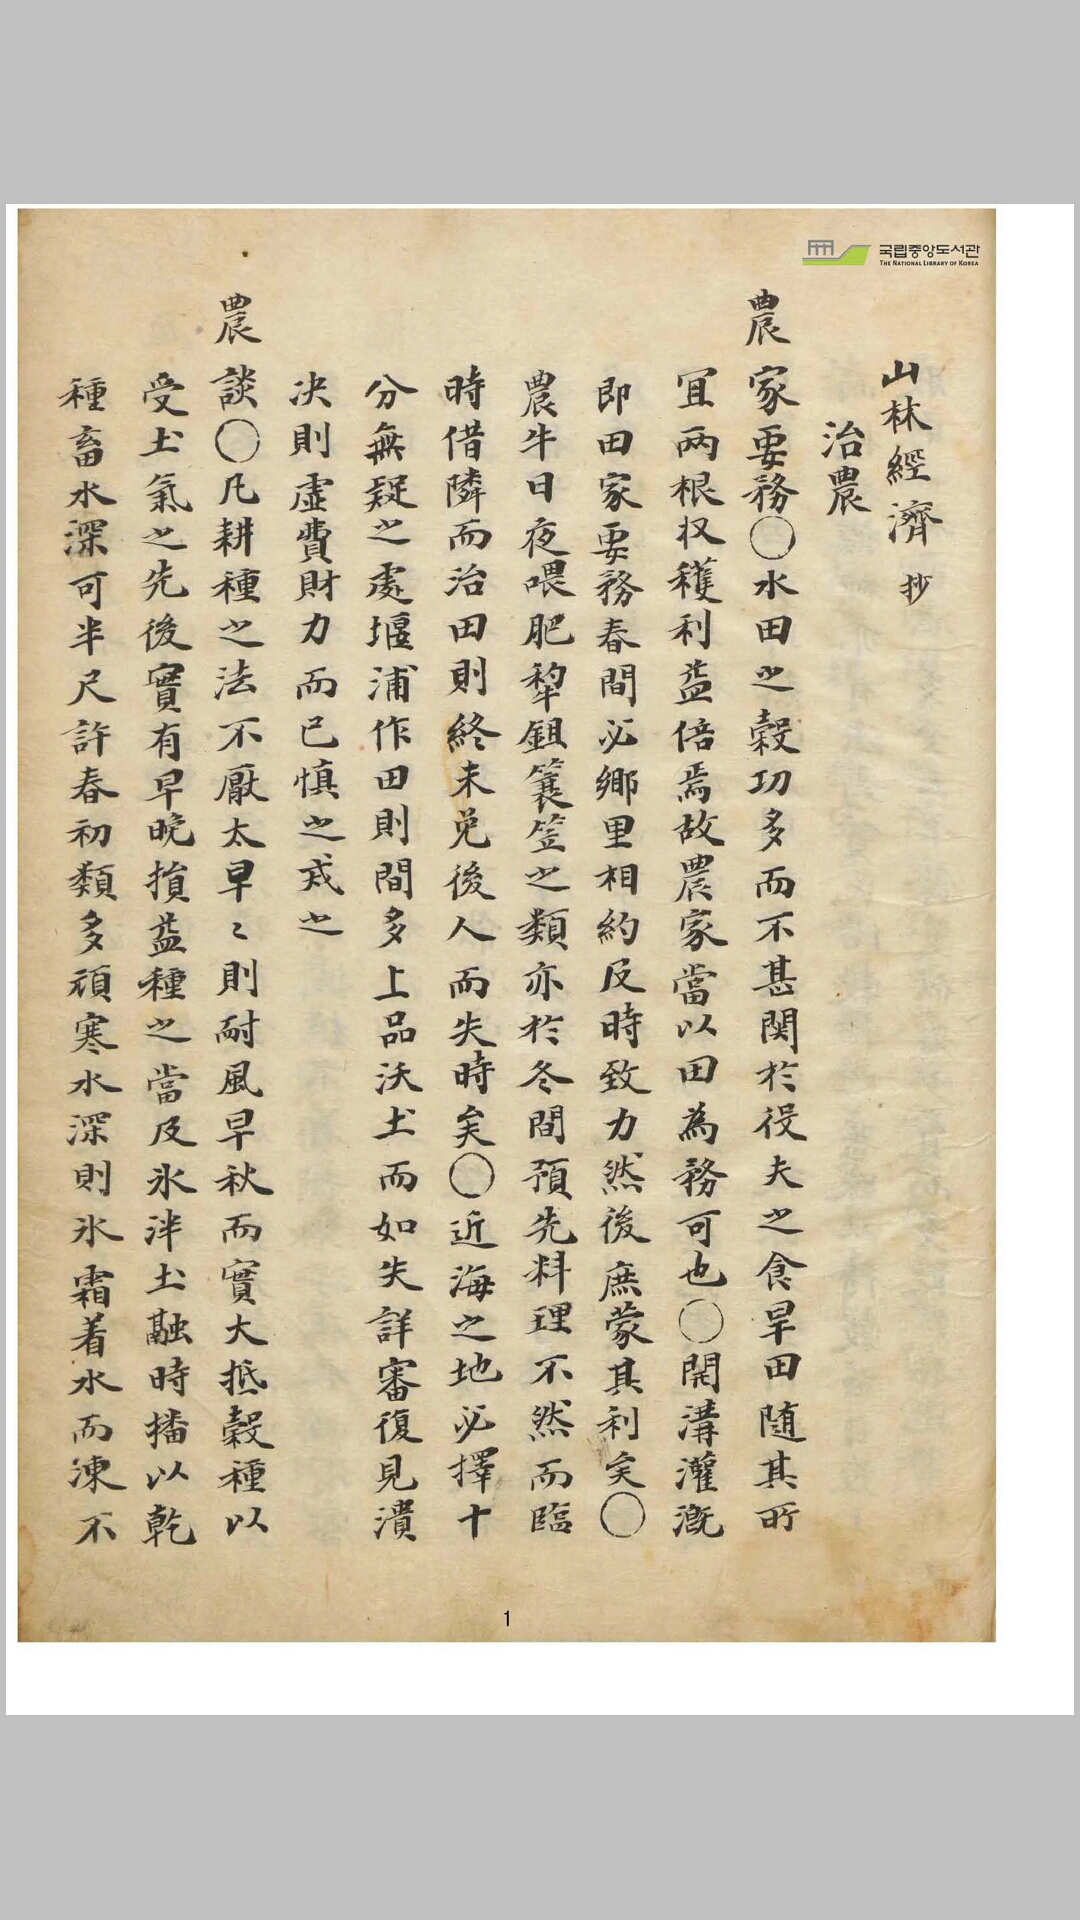 국립중앙도서관
THE NATIONAL LIBRARY OF KOREA
山林經濟 抄
治農
農家要務○水田之穀功多而不甚関於役夫之食旱田随其所
冝兩根収穫利益倍焉故農家當以田為務可也○開溝灌漑
即田家要務春間必鄉里相約及時致力然後庶蒙其利矣○
農牛日夜喂肥犂鉏簑笠之類亦於冬間預先料理不然而臨
時借隣而治田則終未免後人而失時矣○近海之地必擇十
分無疑之處堰浦作田則間多上品沃土而如失詳審復見潰
决則虛費財力而已慎之戒之
農談○凡耕種之法不厭太早〻則耐風早秋而實大抵穀種以
受土氣之先後實有早晚損益種之當及氷泮土融時播以乾
種畜水深可半尺許春初類多頑寒水深則氷霜着水而凍不
1